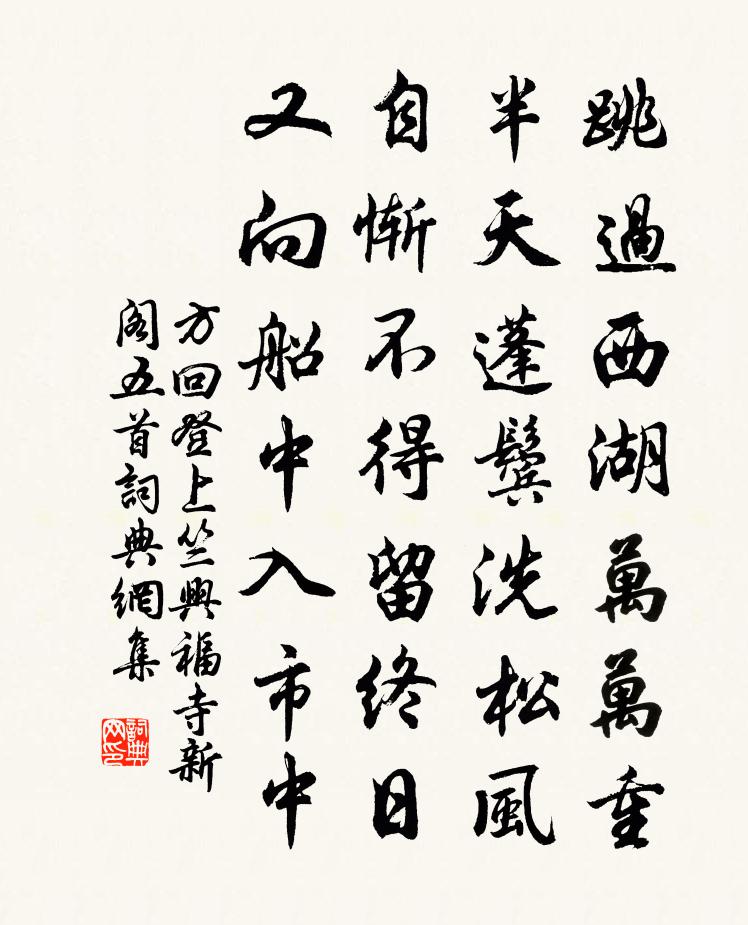 跳過西湖萬萬重
半天蓬鬢洗松風
自慚不得留終日
又向船中入市中
方回登上竺興福寺新
閣五首詞典網集
詞典网印